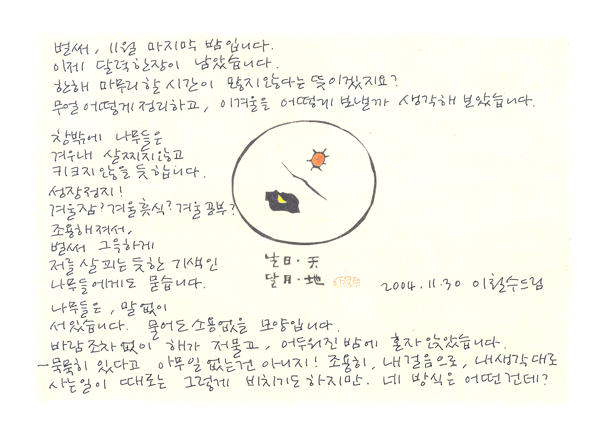 벌써, 11월 마지막 밤입니다.
이제 달력한장이 남았습니다.
한해 마무리할 시간이 많지않다는 뜻이겠지요?
무얼 어떻게정리하고, 이겨울을 어떻게 보낼까 생각해 보았습니다.
창밖에 나무들은
겨우내 살찌지않고
키크지않을 듯 합니다.
성장정지!
겨울잠? 겨울휴식? 겨울공부?
조용해져서,
벌써 그윽하게
저를 살피는 듯한 기색인
나무들에게도 묻습니다.
나무들은, 말 없이
서있습니다. 물어도 소용없을 모양입니다.
바람조차 없이 해가 저물고, 어두워진밤에 혼자 앉았습니다.
-묵묵히 있다고 아무일 없는건 아니지! 조용히, 내걸음으로, 내생각대로
사는일이 때로는 그렇게 비치기도 하지만. 네 방식은 어떤건데?
날 日·天
달 月·地
2004.11.30 이철수드림